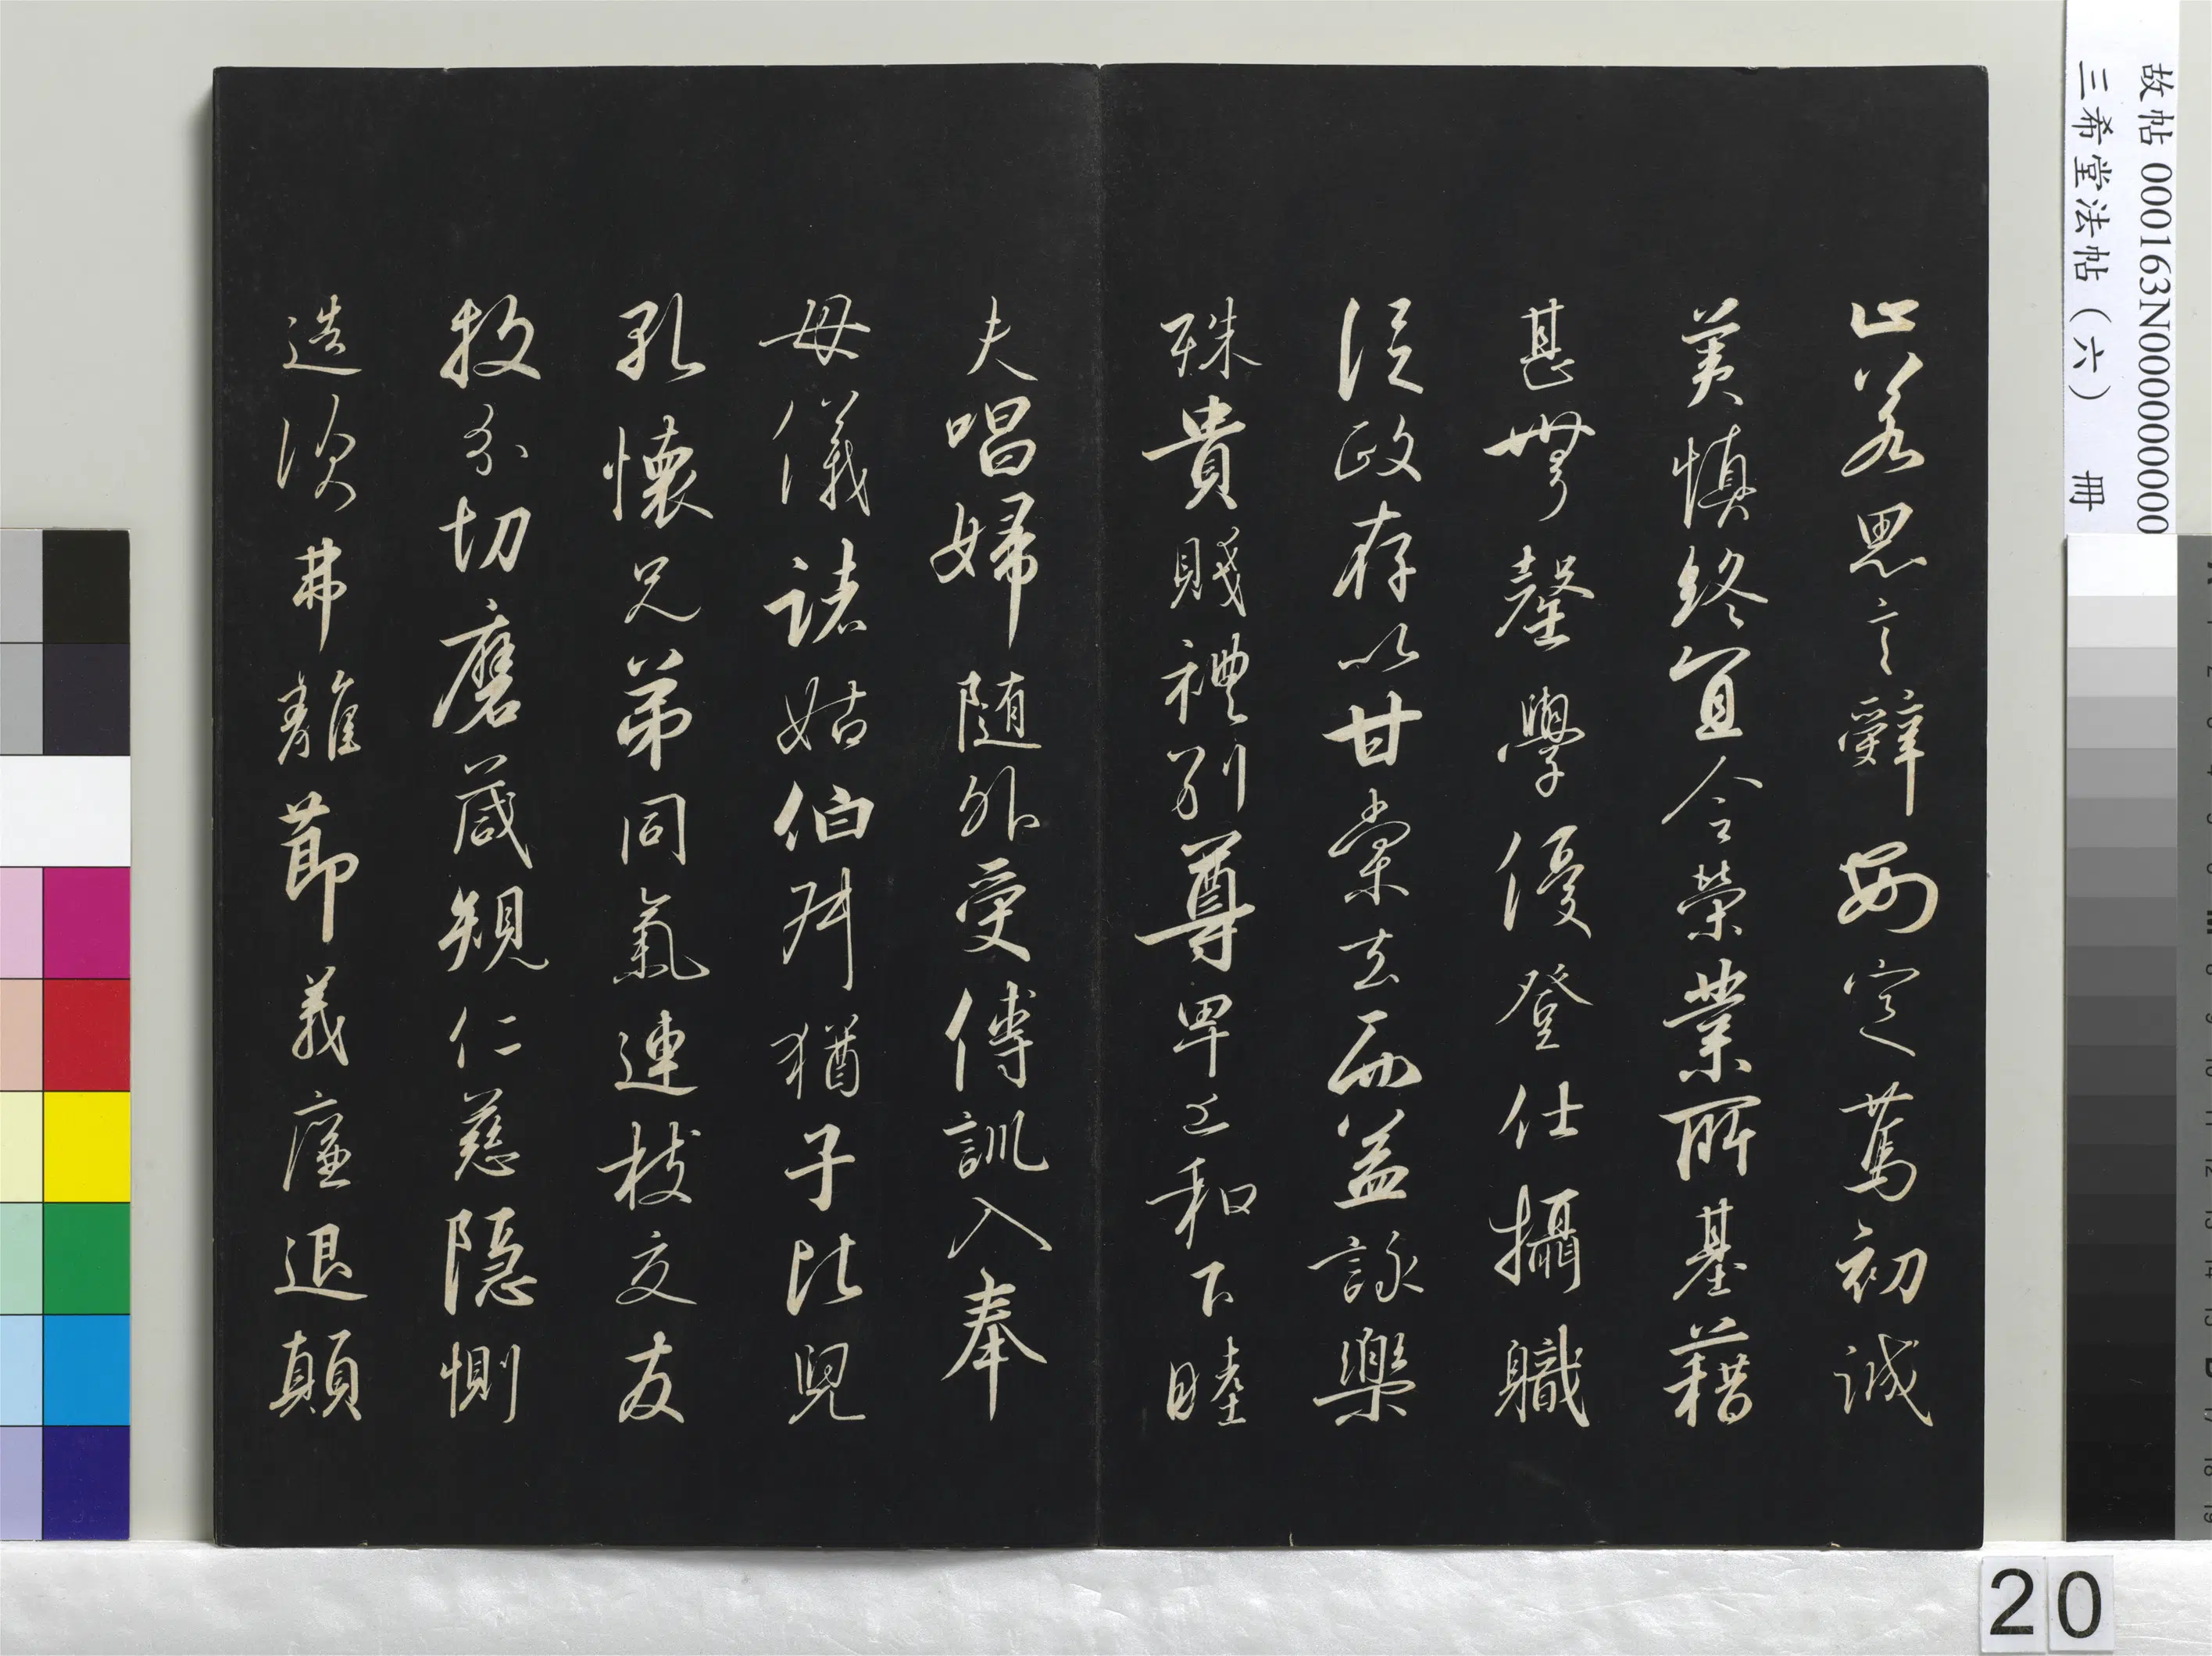 止若思言辭安定篤初誠
美慎終宜令榮業所基藉
甚無罄學優登仕攝職
從政存以甘棠去而益詠樂
殊貴賤禮別尊卑上和下睦
夫唱婦随外受傅訓入奉
母儀諸姑伯叔猶子比兒
孔懷兄弟同氣連枝交友
投分切磨箴規仁慈隠惻
造次弗離節義廉退顛
故帖 000163N000000000
三希堂法帖（六） 冊
20